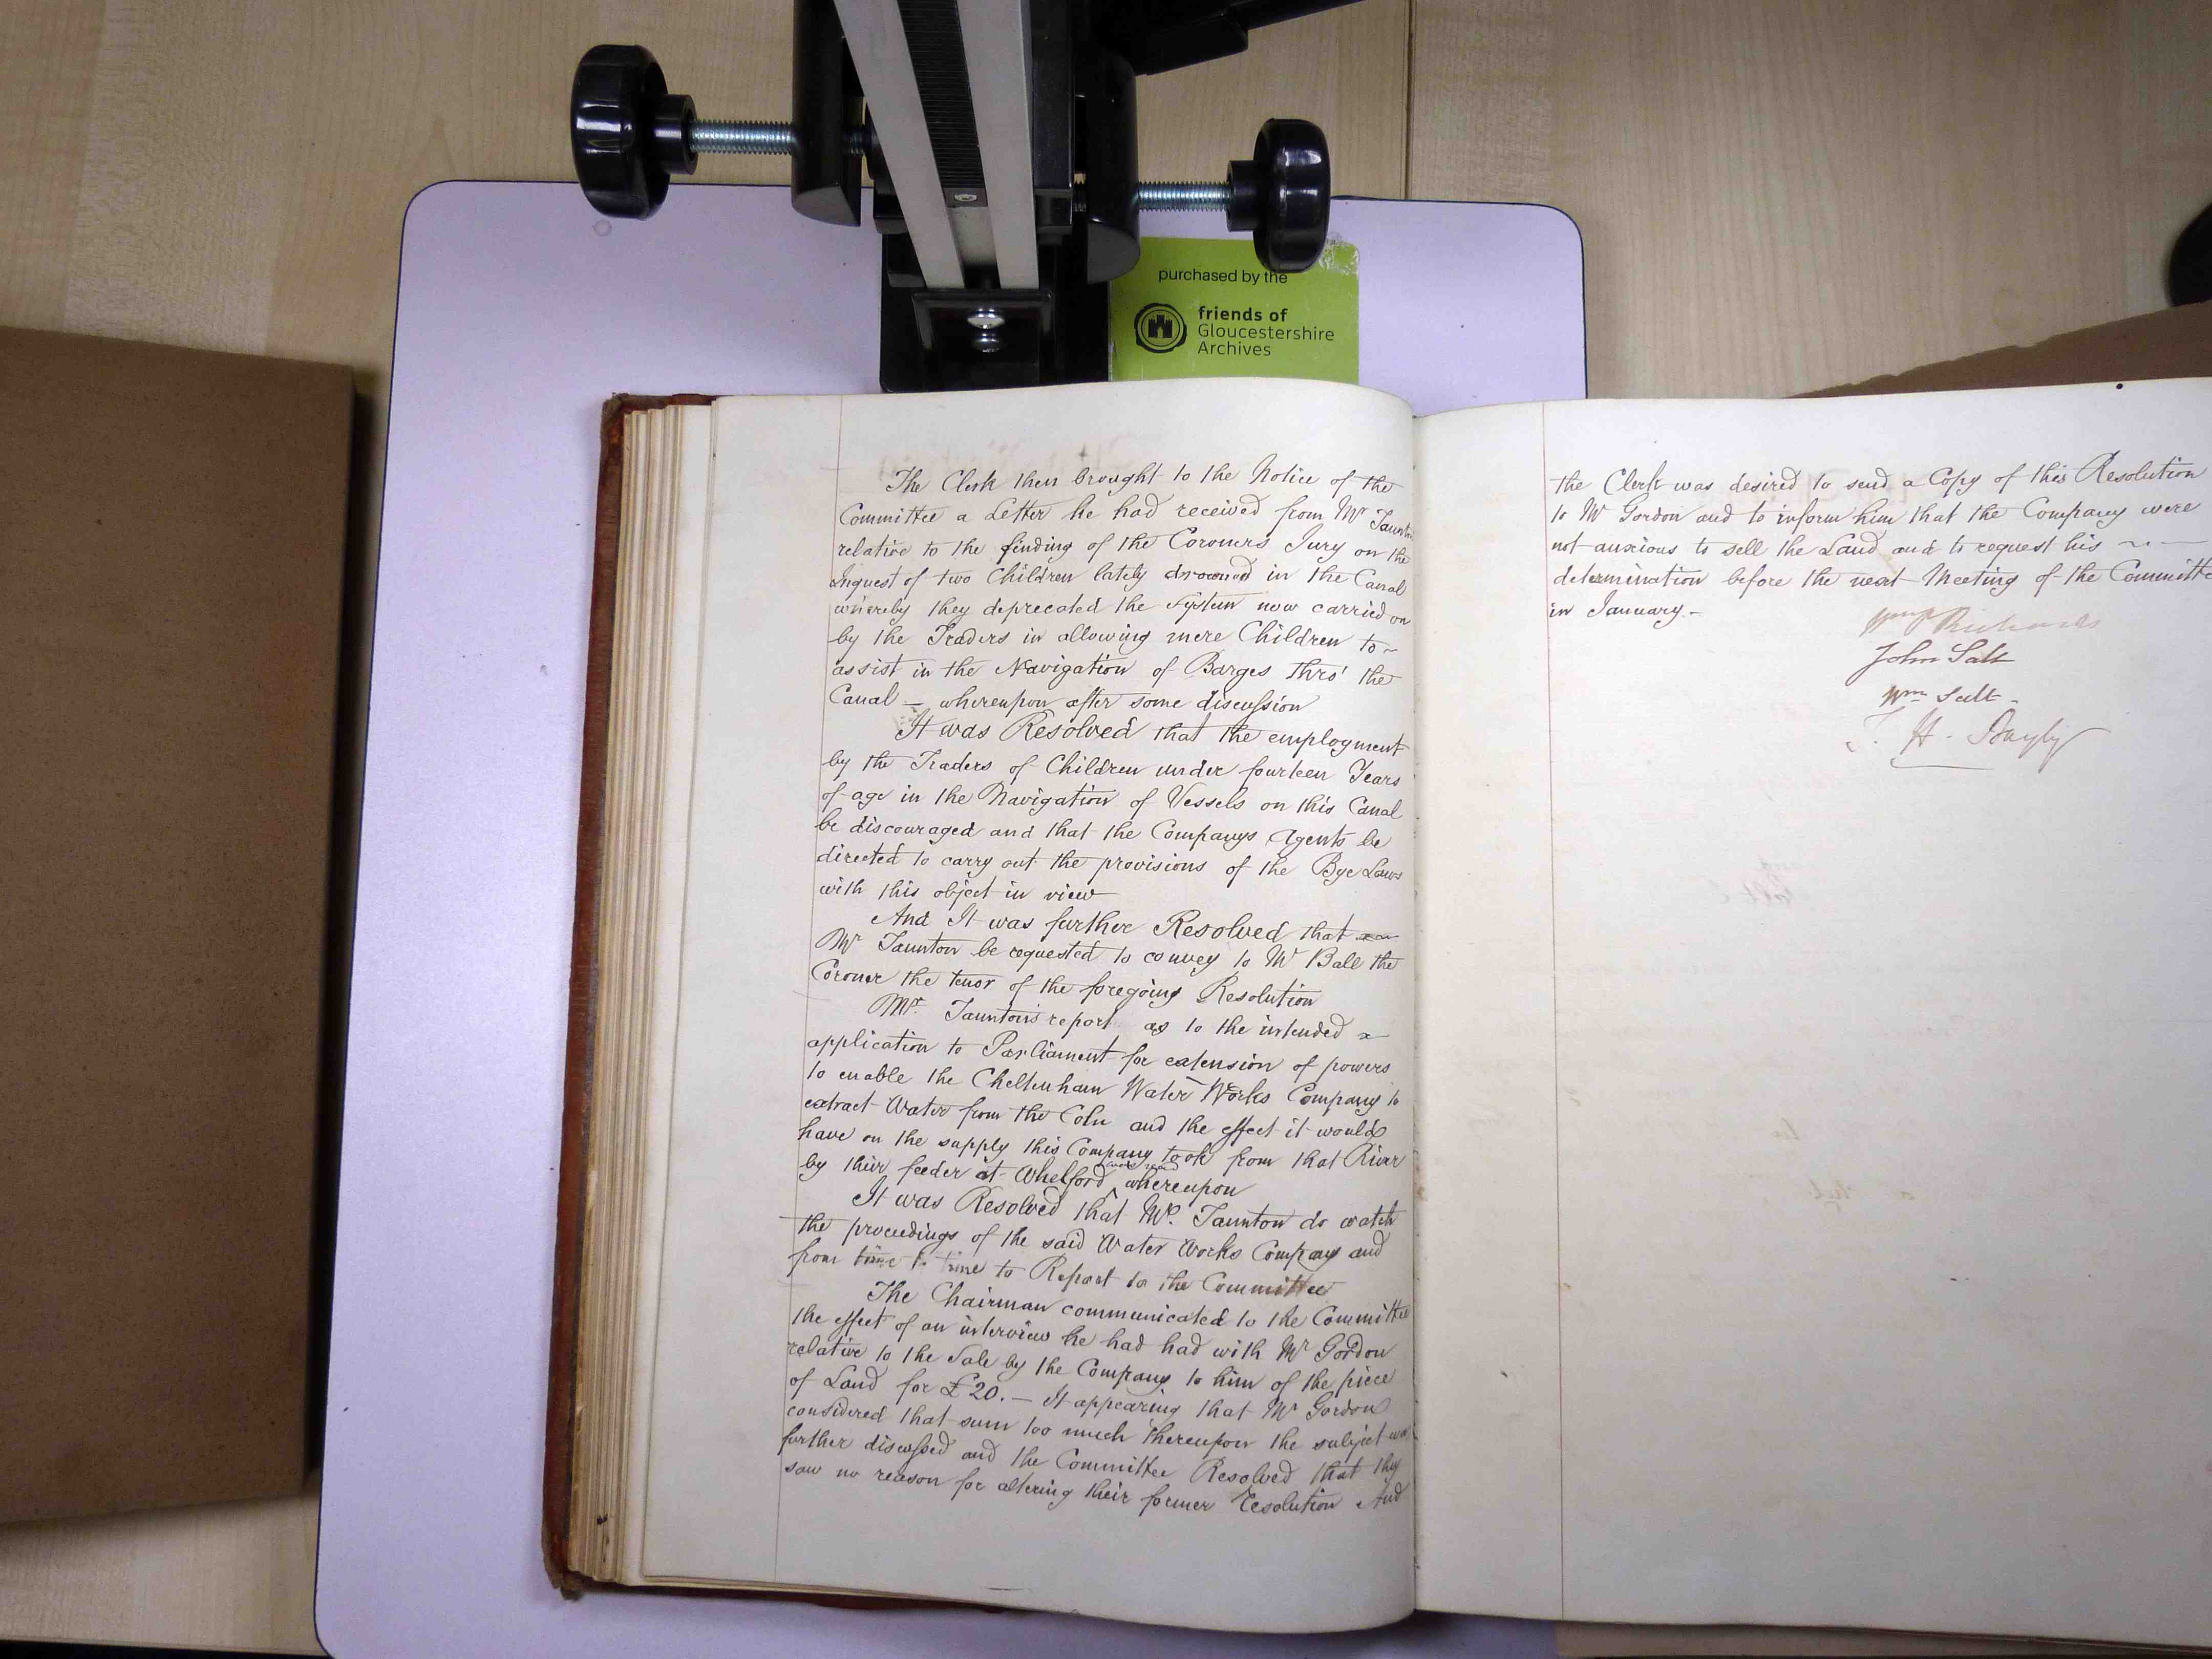 purchased by the
friends of
Gloucestershire
Archives
The Clerk then brought to the Notice of the
Committee a Letter he had received from Mr Taunton
relative to the finding of the Coroners Jury on the
Inquest of two Children lately drowned in the Canal
whereby they deprecated the System now carried on
by the Traders in allowing mere Children to ~
assist in the Navigation of Barges thro' the
Canal – whereupon after some discussion
It was Resolved that the employment
by the Traders of Children under fourteen Years
of age in the Navigation of Vessels on this Canal
be discouraged and that the Companys Agents be
directed to carry out the provisions of the Bye Laws
with this object in view
And It was further Resolved that
Mr Taunton be requested to convey to Mr Ball the
Coroner the tenor of the foregoing Resolution
Mr. Taunton's report as to the intended
application to Parliament for extension of powers
to enable the Cheltenham Water Works Company to
extract Water from the Coln and the effect it would
have on the supply this Company took from that River
by their feeder at Whelford was read whereupon
It was Resolved that Mr. Taunton do watch
the proceedings of the said Water Works Company and
from time to time to Report to the Committee
The Chairman communicated to the Committee
the effect of an interview he had had with Mr Gordon
relative to the Sale by the Company to him of the piece
of Land for £20. – It appearing that Mr Gordon
considered that sum too much thereupon the subject was
further discussed and the Committee Resolved that they
saw no reason for altering their former Resolution And
the Clerk was desired to send a Copy of this Resolution
to Mr Gordon and to inform him that the Company were
not anxious to sell the Land and to request his ~ —
determination before the next Meeting of the Committee
in January. –
Richards
John Salt
Wm Salt
H.